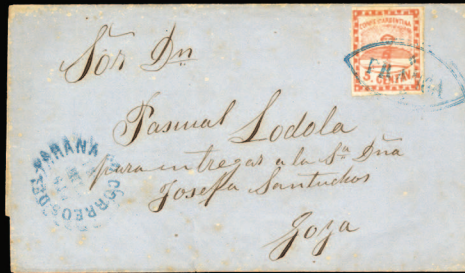 Sor Dn
CONFON ARGENTINA
5 CENTAV
FRANCA
Pascual Lodola
para entregar a la Sa Dña
Josefa Santuchos
Goya
CORREOS DEL PARANA